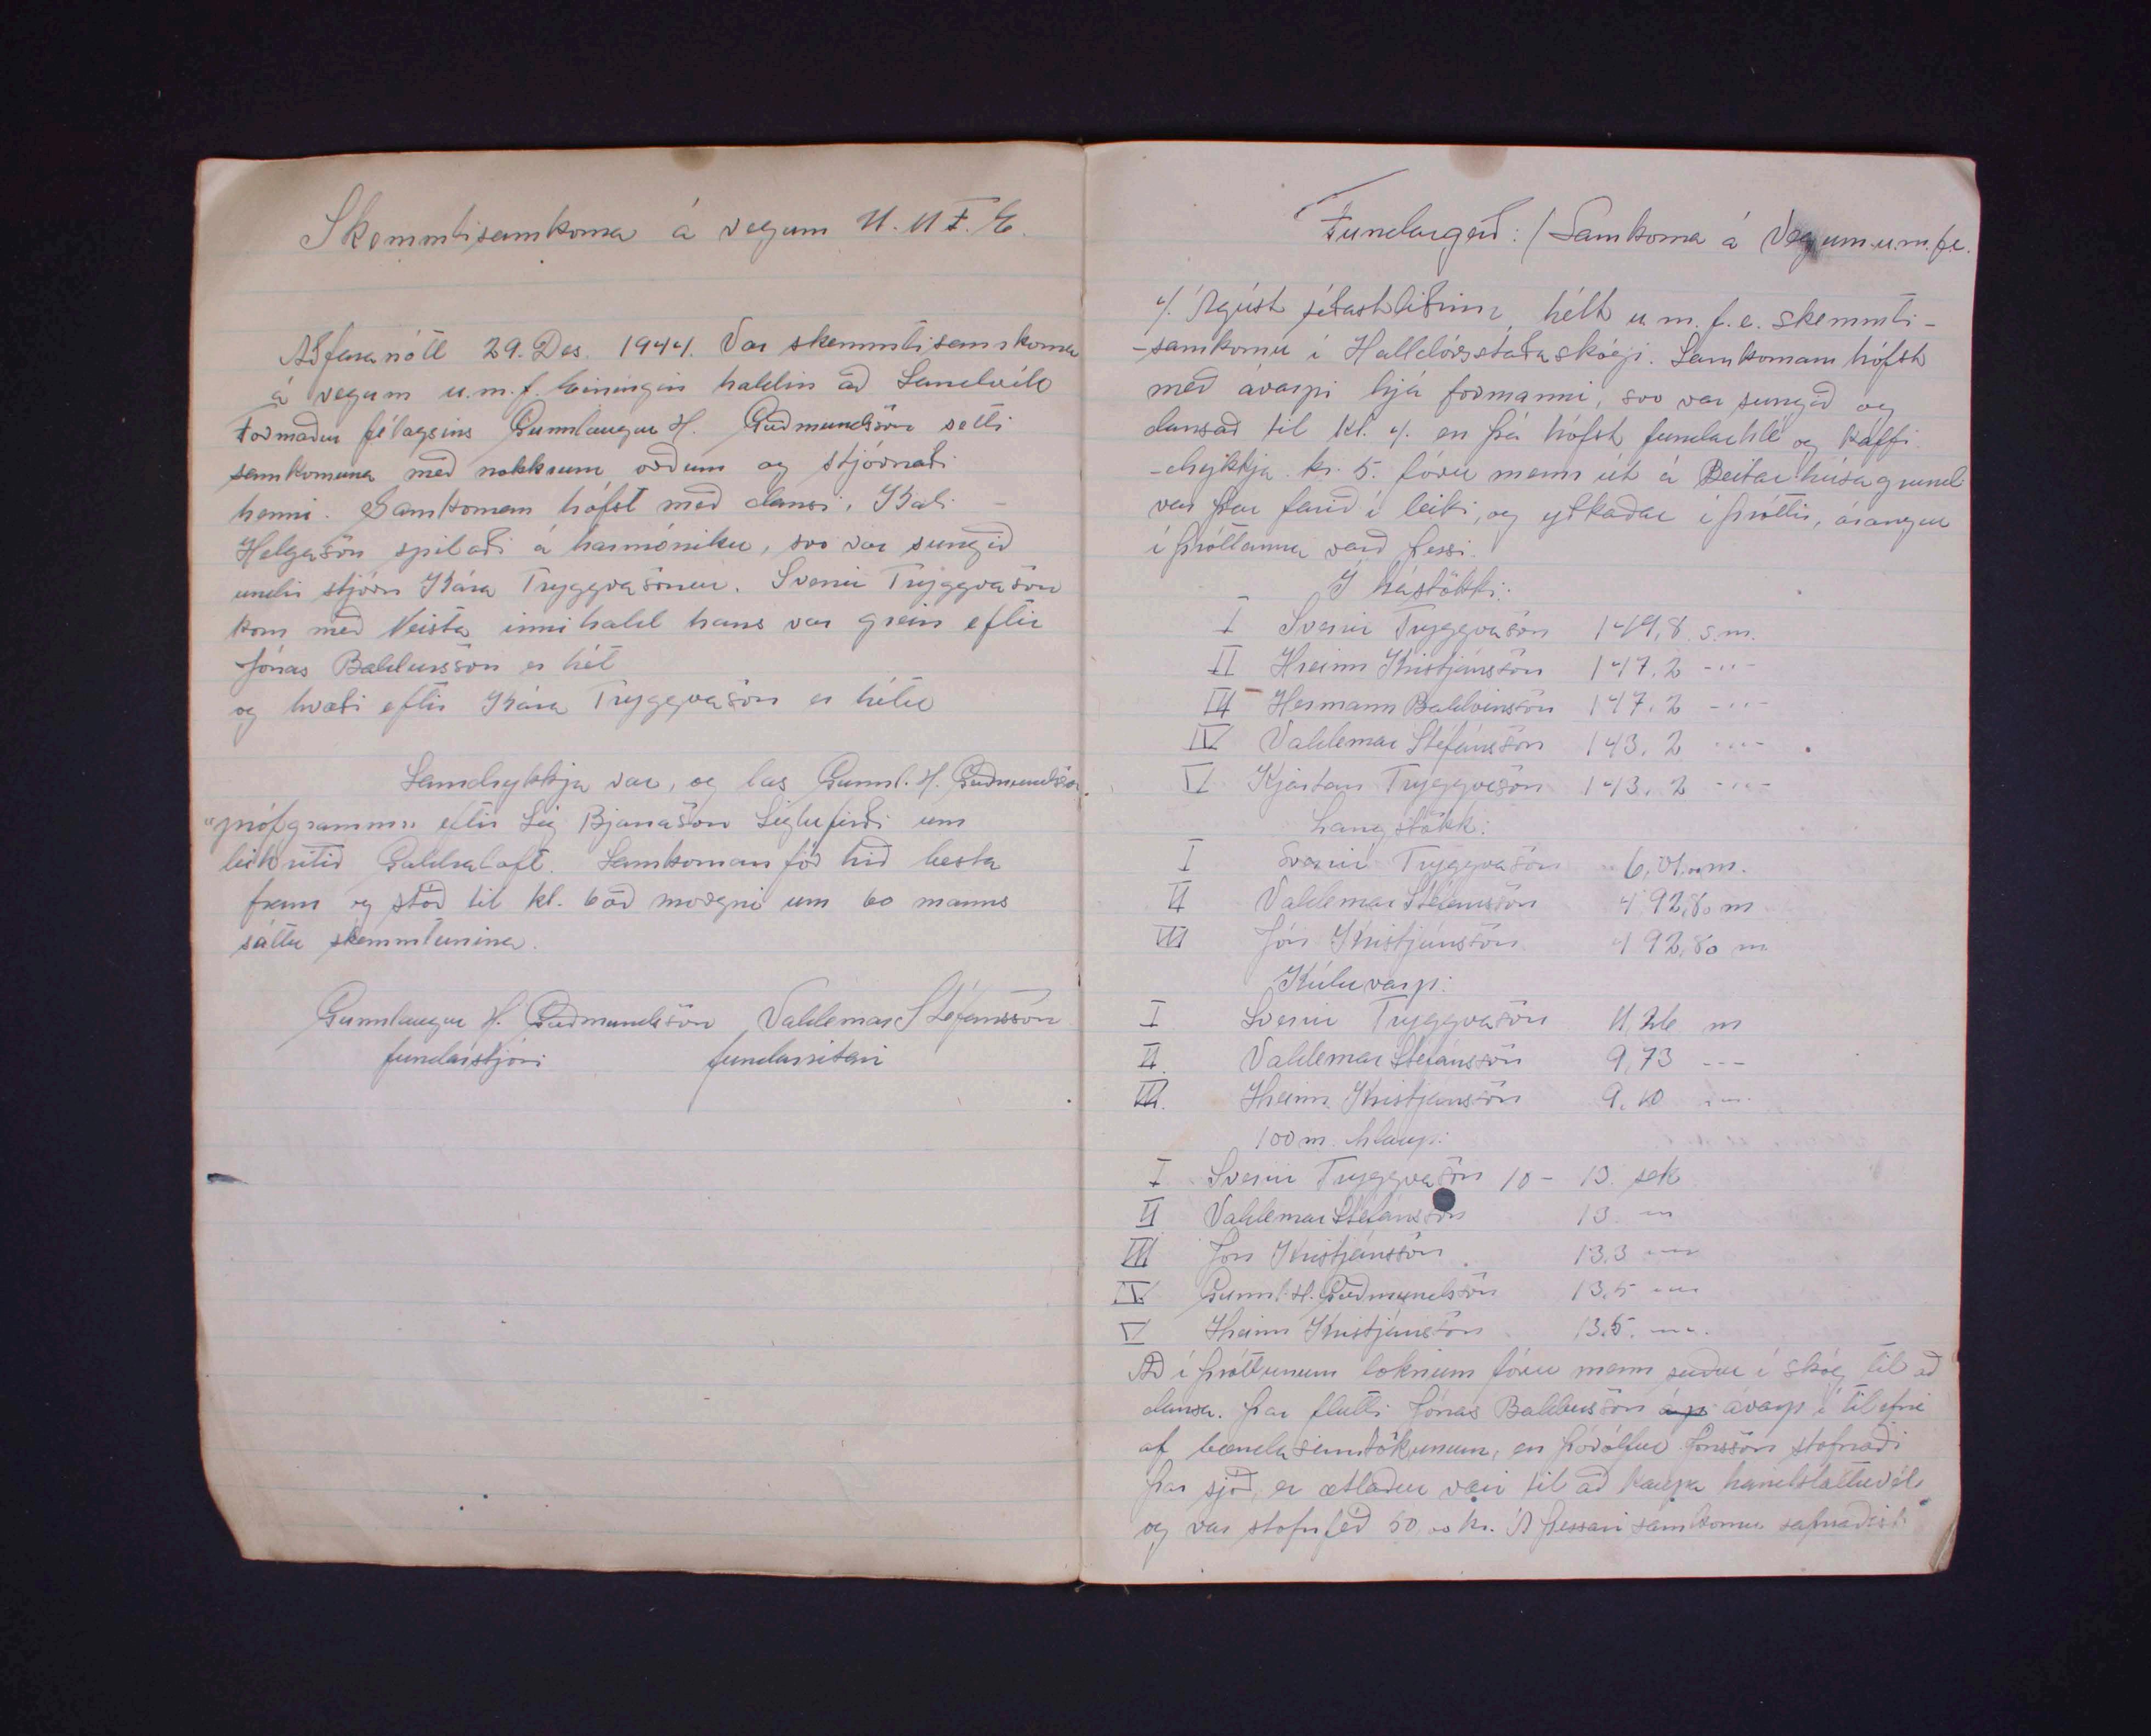 Skemmtisamkoma á vegum U.M.F.E.
Aðfaranótt 29. Des. 1944. Var skemmtisamkoma
á vegum u.m.f. Einingin haldin að Sandvík
Formaður félagsins Gunnlaugur H. Guðmundsson setti
samkomuna með nokkrum orðum og stjórnaði
henni. Samkoman hófst með dansi, Kári
Helgason spilaði á harmóniku, svo var sungið
undir stjórn Kára Tryggvasonar. Sverrir Tryggvason
kom með Neista innihald hans var grein eftir
Jónas Baldursson er hét
og kvæði eftir Kára Tryggvason er hétu
Samdrykkja var, og las Gunnl. H. Guðmundsson
"prófgrammu eftir Sig Bjarnason Siglufirði um
leikritið Galdraloft. Samkoman fór hið besta
fram og stóð til kl. 6 að morgni um 60 manns
sóttu skemmtunina.
Gunnlaugur H. Guðmundsson Valdemar Stefánsson
fundarstjóri fundarritari
Fundargerð: / Samkoma á Vegum u.m.f.e.
4. Ágúst síðastliðinn hélt u.m.f.e. skemmti-
-samkomu í Halldórsstaðaskógi. Samkoman hófst
með ávarpi hjá formanni, svo var sungið og
dansað til kl. 4. en þá hófst fundarhlé og kaffi-
-drykkja. kl. 5. fóru menn út á Beitarhúsagrund
var þar farið í leiki, og ýðkaðar íþróttir, árangur
íþróttanna varð þessi.
Í hástökki:
I Sverrir Tryggvason 149,8 s.m.
II Hreinn Kristjánsson 147,2 -"-
III Hermann Baldvinsson 147,2 -"-
IV Valdemar Stefánsson 143,2 -"-
V Kjartan Tryggvason 143,2 -"-
Langstökk:
I Sverrir Tryggvason 6,01,00 m.
II Valdemar Stefánsson 4 92,80 m
III Jón Kristjánsson 4 92,80 m
Kúluvarp:
I Sverrir Tryggvason 11,26 m
II. Valdemar Stefánsson 9,73 ---
III. Hreinn Kristjánsson 9,10 -"-
100 m. hlaup:
I Sverrir Tryggvason 10 - 13. sek
II Valdemar Stefánsson 13 -"-
III Jón Kristjánsson 13,3 -"-
IV. Gunnl. H. Guðmundsson 13,5 -"-
V Hreinn Kristjánsson 13.5. -"-
Að íþróttunum loknum fóru menn suður í skóg til að
dansa. Þar flutti Jónas Baldursson ávarp í tilefni
af bændasamtökunum, en Þórólfur Jónsson stofnaði
þar sjóð, er ætlaður væri til að kaupa handsláttuvél
og var stofnféð 50,00 kr. Á þessari samkomu safnaðist